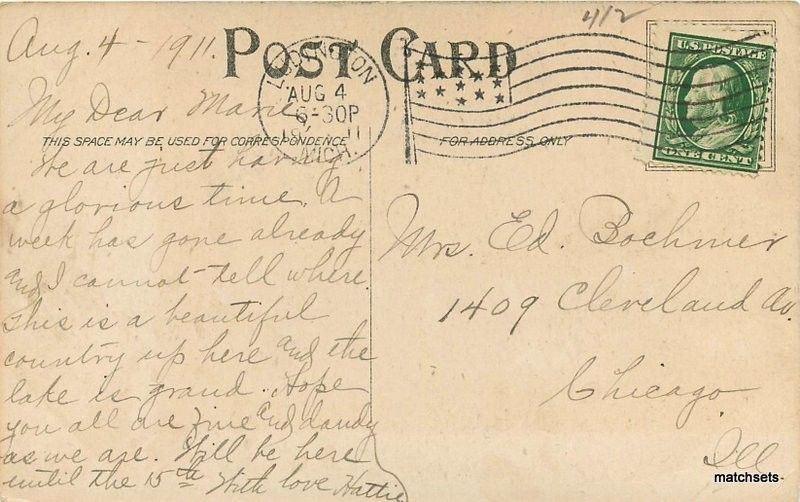 412
Aug. 4 - 1911.
POST CARD
LUDINGTON
AUG 4
6-30P
1911
MICH.
U.S. POSTAGE
ONE CENT
THIS SPACE MAY BE USED FOR CORRESPONDENCE
FOR ADDRESS ONLY
My Dear Marie
We are just having
a glorious time. A
week has gone already
and I cannot tell where.
This is a beautiful
country up here and the
lake is grand. Hope
you all are fine and dandy
as we are. Will be here
until the 15th With love Hattie
Mrs. Ed. Boehmer
1409 Cleveland Av.
Chicago
Ill
matchsets